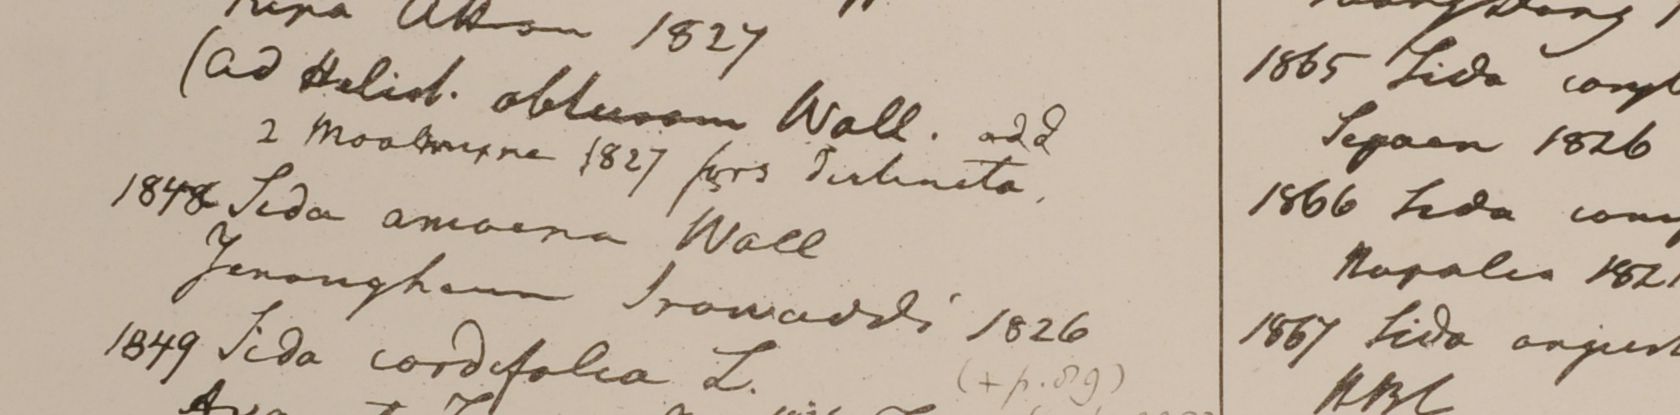 Ripa Attran 1827
(ad Helict. obtusam Wall. add
2 Moalmeyne 1827 fors distincta.
1848 Sida amoena Wall
Yenangheum Irawaddi 1826
1849 Sida cordifolia L.
(+ p. 89)
1865 Sida
Segaen 1826
1866 Sida
Napalia 1821
1867 Sida
HBC